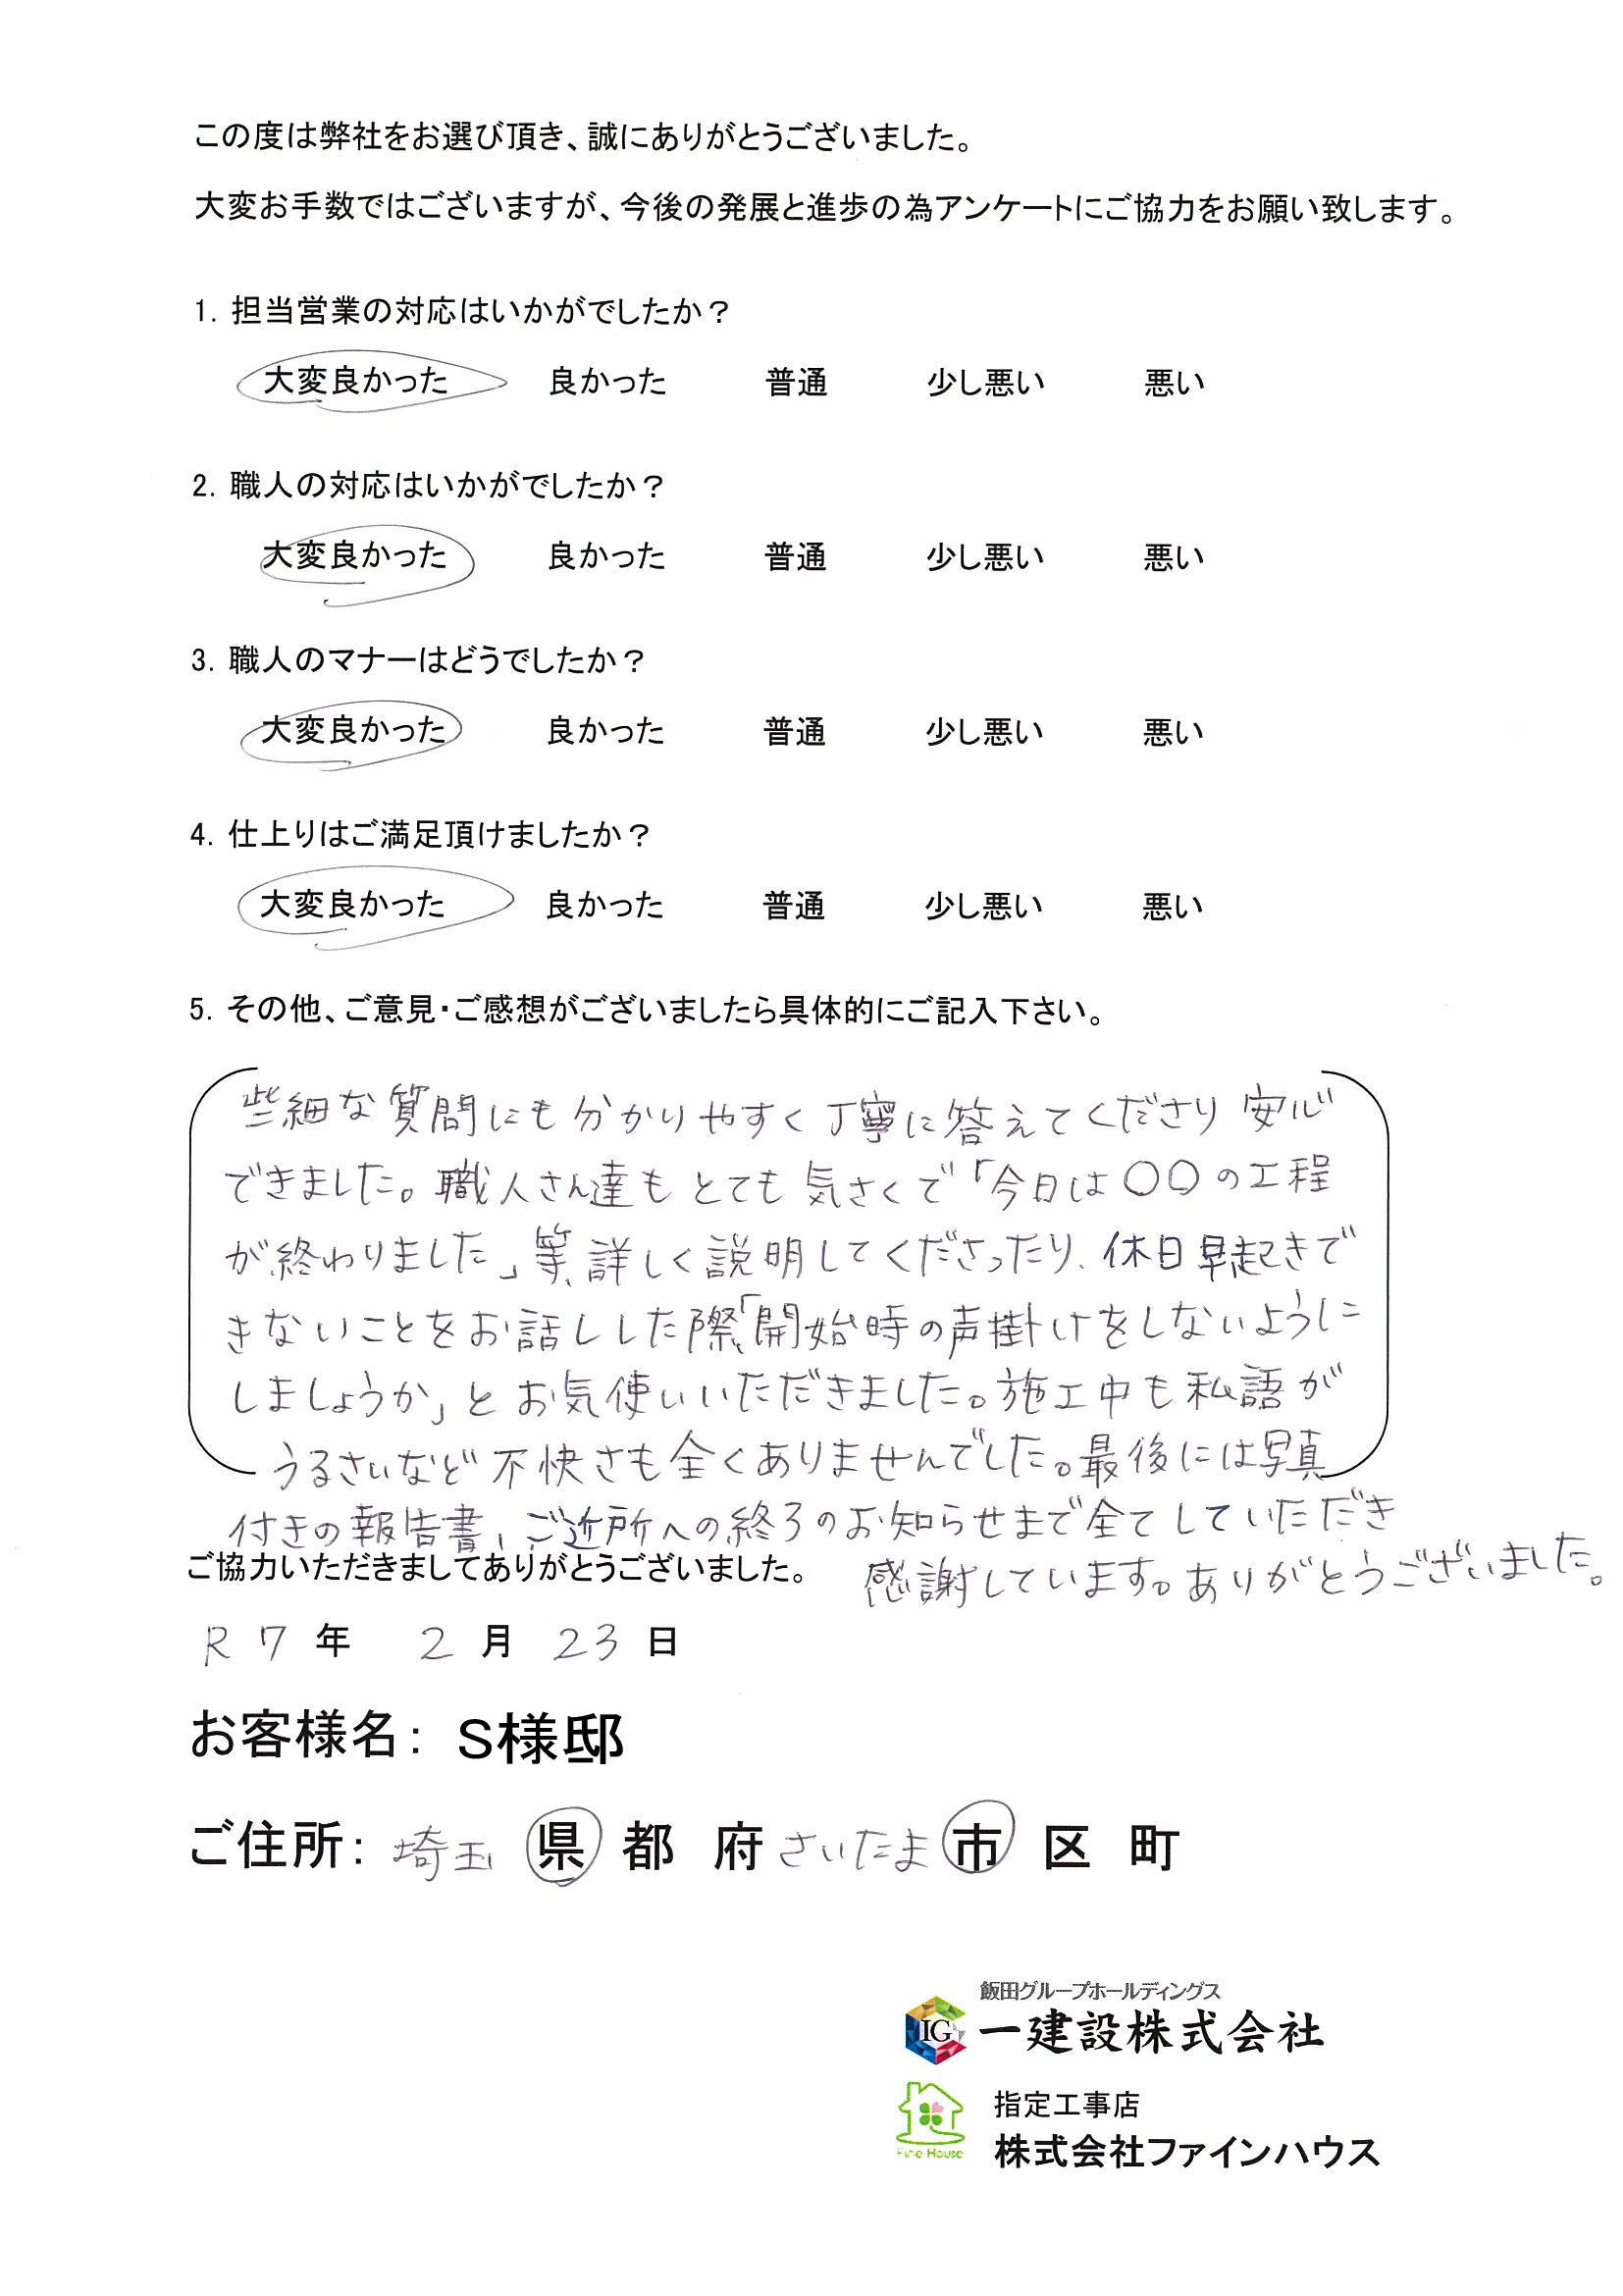 この度は弊社をお選び頂き、誠にありがとうございました。
大変お手数ではございますが、今後の発展と進歩の為アンケートにご協力をお願い致します。
1. 担当営業の対応はいかがでしたか？
大変良かった 良かった 普通 少し悪い 悪い
2. 職人の対応はいかがでしたか？
大変良かった 良かった 普通 少し悪い 悪い
3. 職人のマナーはどうでしたか？
大変良かった 良かった 普通 少し悪い 悪い
4. 仕上りはご満足頂けましたか？
大変良かった 良かった 普通 少し悪い 悪い
5. その他、ご意見・ご感想がございましたら具体的にご記入下さい。
些細な質問にも分かりやすく丁寧に答えてくださり安心
できました。職人さん達もとても気さくで「今日は〇〇の工程
が終わりました」等、詳しく説明してくださったり、休日早起きで
きないことをお話しした際、「開始時の声掛けをしないように
しましょうか」とお気使いいただきました。施工中も私語が
うるさいなど不快さも全くありませんでした。最後には写真
付きの報告書、ご近所への終了のお知らせまで全てしていただき
感謝しています。ありがとうございました。
ご協力いただきましてありがとうございました。
R7年 2月 23日
お客様名： S様邸
ご住所： 埼玉 県 都 府 さいたま 市 区 町
飯田グループホールディングス
IG 一建設株式会社
指定工事店
Fine House 株式会社ファインハウス